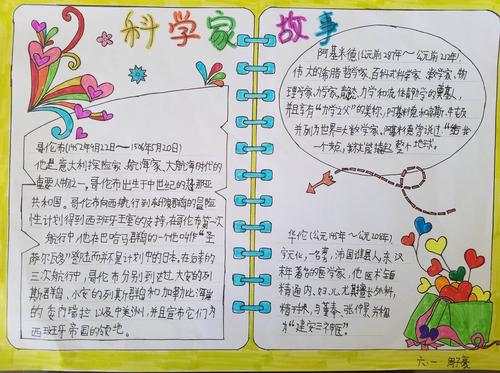 科学家故事
哥伦布(1452年9月22日～1506年5月20日)
他是意大利探险家、航海家、大航海时代的
重要人物之一。哥伦布出生于中世纪的热那亚
共和国。哥伦布向西航行到
性计划得到西班牙王室的支持,在哥伦布第一次
航行中,他在巴哈马群岛的一个他叫作"圣
萨尔瓦多"登陆而并不是计划中的日本。在后来的
三次航行中,哥伦布分别到达大安的列
斯群岛、小安的列斯群岛和加勒比海岸
的委内瑞拉以及中美洲,并且宣布它们为
西班牙帝国的领地。
阿基米德(公元前287年～公元前212年)
伟大的古希腊哲学家、百科式科学家、数学家、物
理学家、力学家,静态力学和流体静力学的奠基人,
并且享有"力学之父"的美称,阿基米德和高斯、牛顿
并列为世界三大数学家。阿基米德曾说过:"给我
一个支点,我就能撬起整个地球。
华佗(公元145年～公元208年)
字元化,一名旉,沛国谯县人,东汉
末年著名的医学家,他医术全面
精通内、妇、儿尤其擅长外科,
与董奉、张仲景并称
为"建安三神医"。
六.一